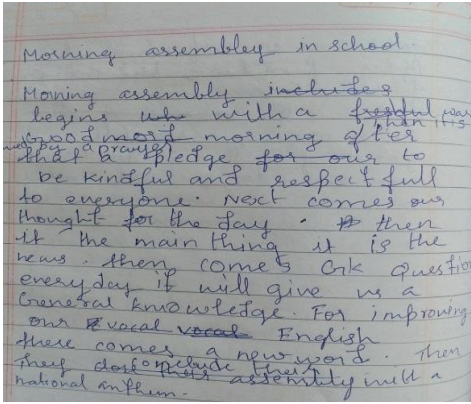 Morning assembley in school.
Morning assembly includes
begins with a
Good most morning after
that a pledge for our to
be kindful and respectfull
to everyone. Next comes our
thought for the day. then
it the main thing it is the
news. then comes GK Question
everyday it will give us a
General knowledge. For improving
our vocal vocal English
there comes a new word. Then
They conclude their assembly with a
national anthem.